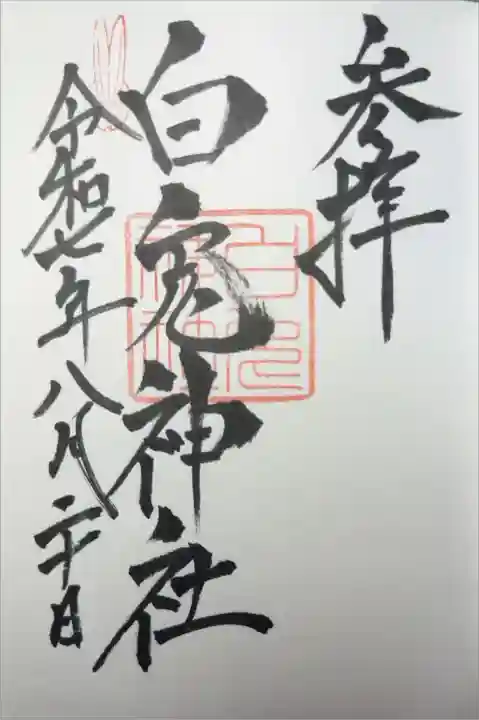 参拝
白兔神社
令和七年八月二十日